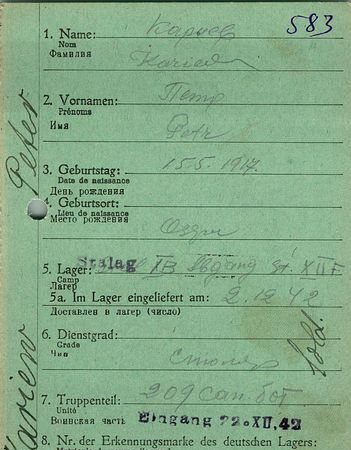 583
1. Name: Карыев
Nom
Фамилия
Kariew
2. Vornamen: Петр
Prénoms
Имя Petr
3. Geburtstag: 15.5.1917.
Date de naissance
День рождения
4. Geburtsort:
Lieu de naissance
Место рождения
5. Lager: Stalag XB Abgang St. XII F
Camp
Лагер
5a. Im Lager eingeliefert am: 2.12.42
Доставлен в лагер (число)
6. Dienstgrad:
Grade
Чин
Sold.
7. Truppenteil: 209 сан. бат
Unité
Воинская часть Eingang 22. XII. 42
8. Nr. der Erkennungsmarke des deutschen Lagers:
Kariew Peter